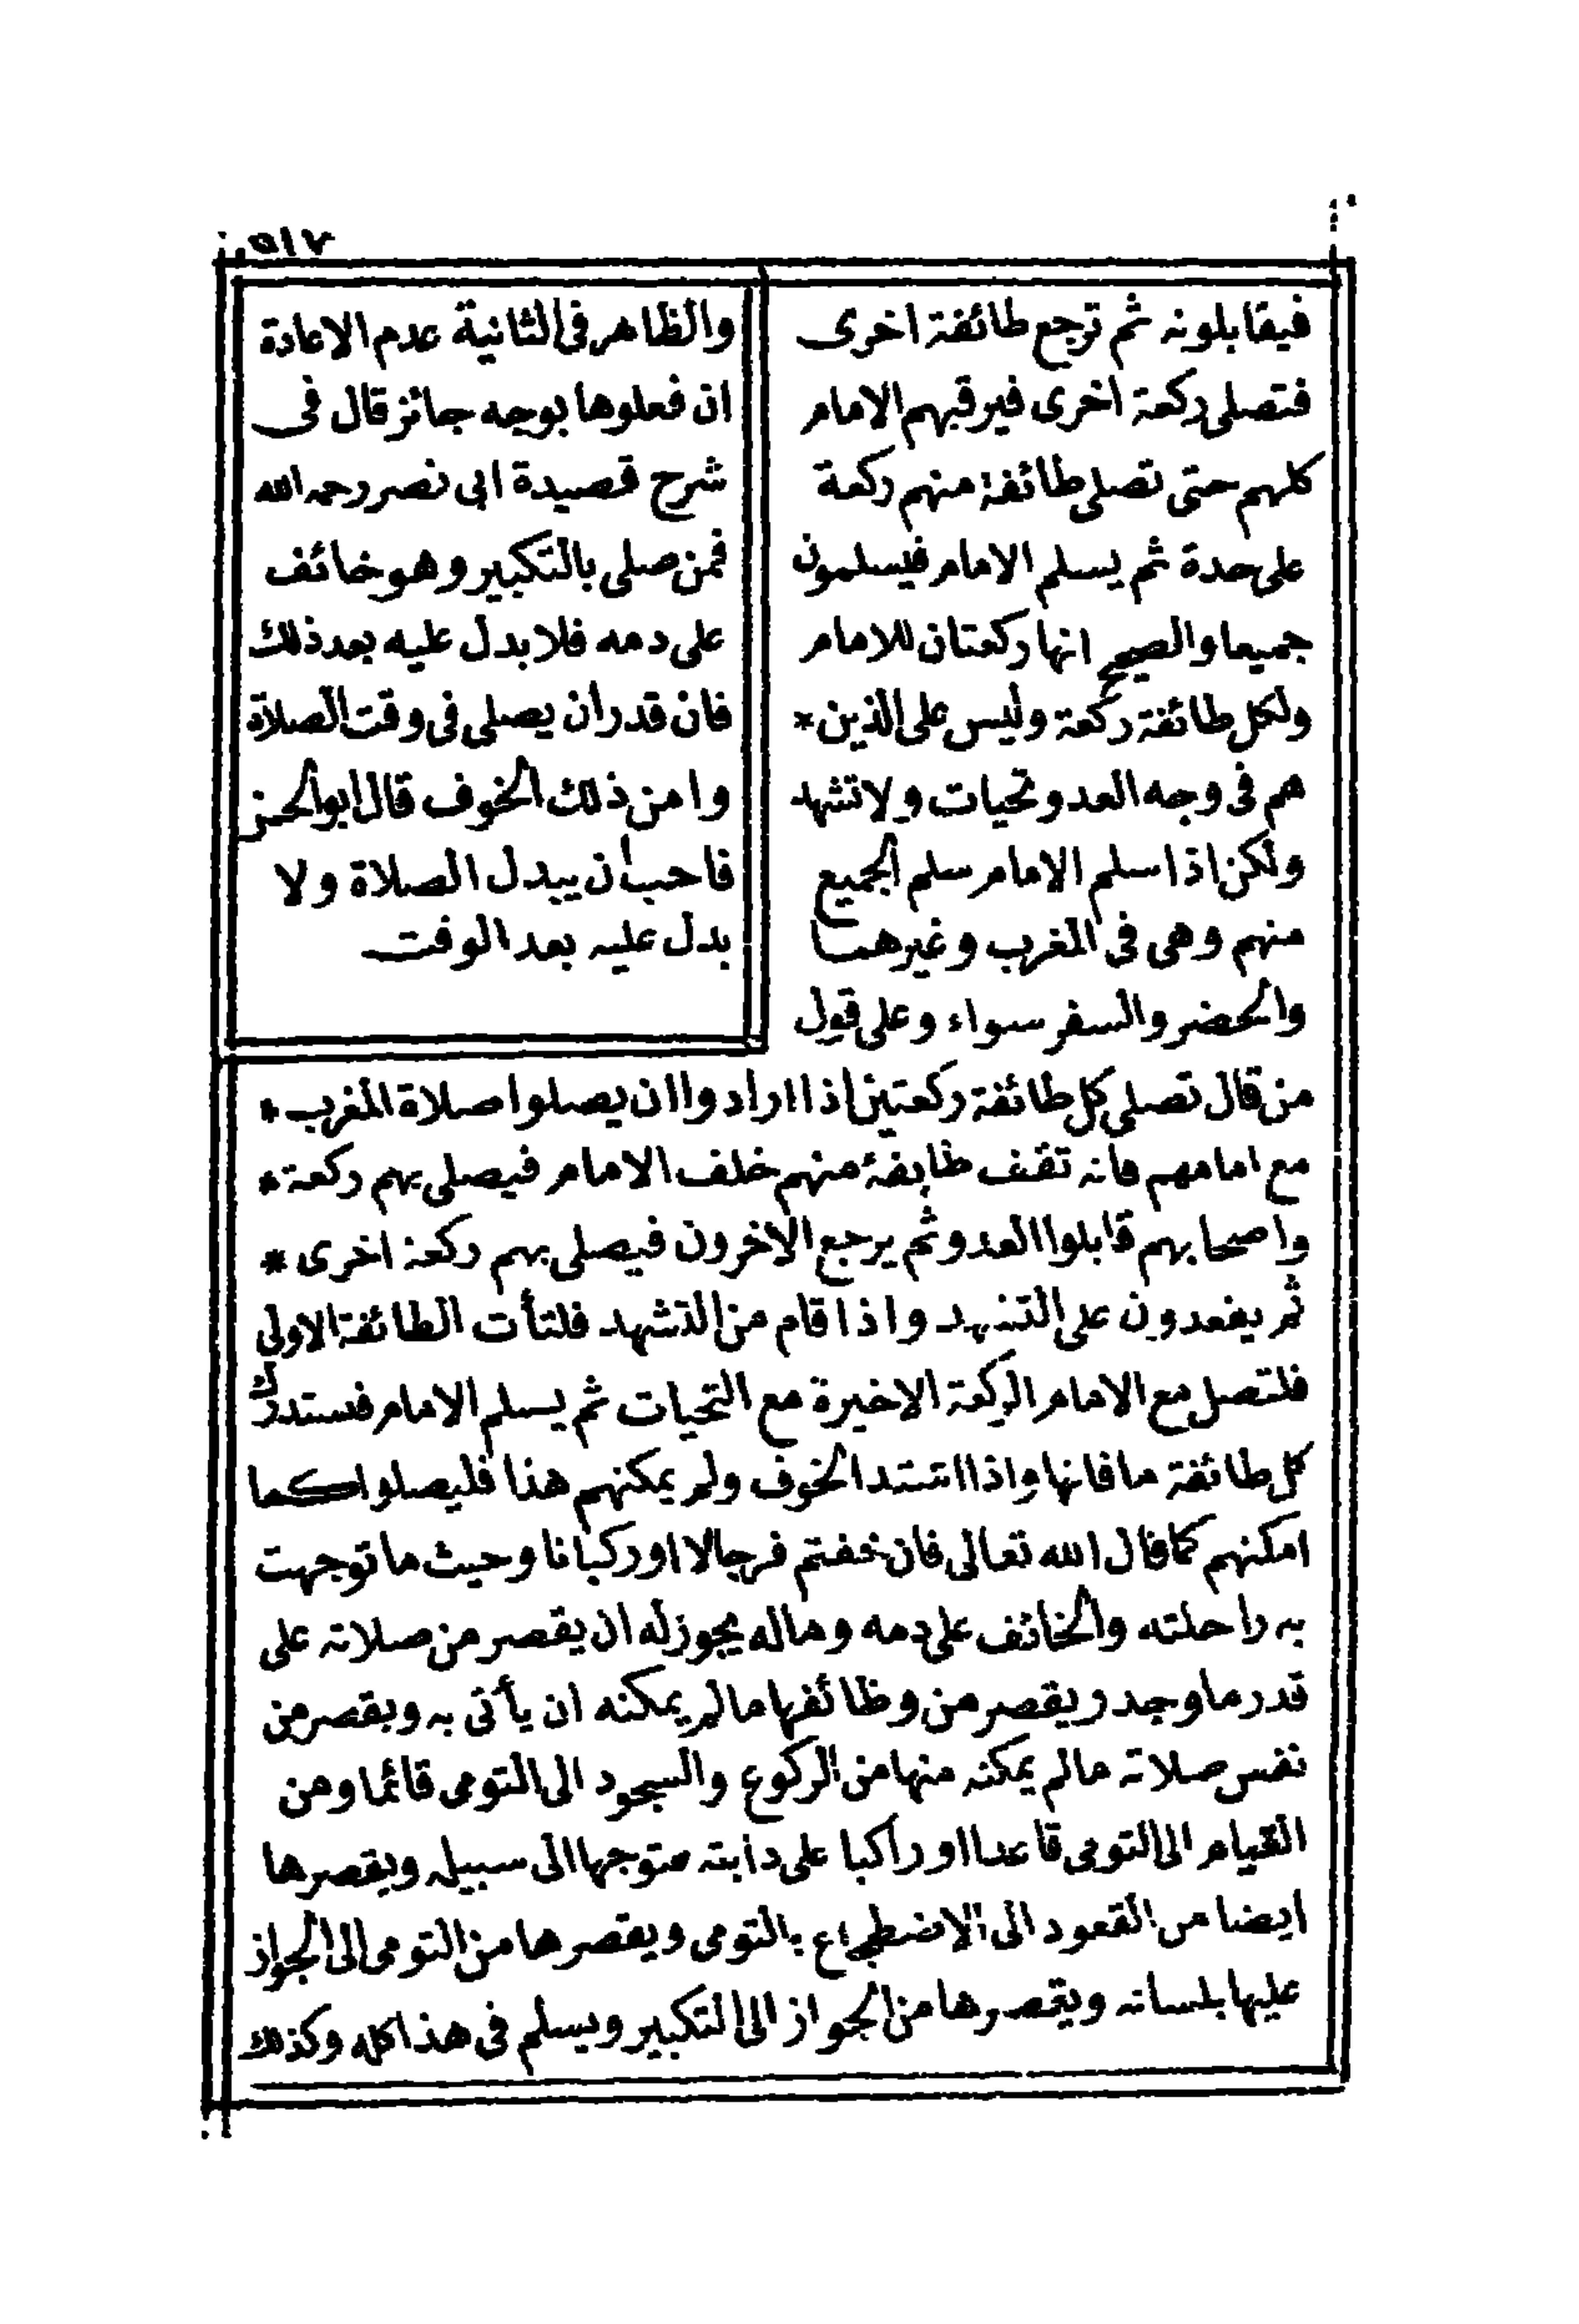 ٥١٧
فيقابلونه ثم ترجع طائفة اخرى
فتصلى ركعة اخرى فيرقبهم الامام
كلهم حتى تصلى طائفة منهم ركعة
على حدة ثم يسلم الامام فيسلمون
جميعا والصحيح انها ركعتان للامام
ولكل طائفة ركعة وليس على الذين *
هم فى وجه العدو تحيات ولا تشهد
ولكن اذا سلم الامام سلم الجميع
منهم وهى فى المغرب وغيرها
والحضر والسفر سواء وعلى قول
والظاهر فى الثانية عدم الاعادة
ان فعلوها بوجه جائز قال فى
شرح قصيدة ابى نصر رحمه الله
فمن صلى بالتكبير وهو خائف
على دمه فلا بدل عليه بعد ذلك
فان قدر ان يصلى فى وقت الصلاة
وامن ذلك الخوف قال ابو الحسن
فاحب ان يبدل الصلاة ولا
بدل عليه بعد الوقت
من قال تصلى كل طائفة ركعتين اذا ارادوا ان يصلوا صلاة المغرب *
مع امامهم فانه تقف طايفة منهم خلف الامام فيصلى بهم ركعة *
واصحابهم قابلوا العدو ثم يرجع الاخرون فيصلى بهم ركعة اخرى *
ثم يقعدون على التشهد واذا قام من التشهد فلتأت الطائفة الاولى
فلتصل مع الامام الركعة الاخيرة مع التحيات ثم يسلم الامام فستدرك
كل طائفة ما فاتها واذا اشتد الخوف ولم يمكنهم هذا فليصلوا كما
امكنهم كما قال الله تعالى فان خفتم فرجالا او ركبانا وحيث ما توجهت
به راحلته والخائف على دمه وماله يجوز له ان يقصر من صلاته على
قدر ما وجد ويقصر من وظائفها ما لم يمكنه ان يأتى به ويقصر من
نفس صلاته ما لم يمكنه منها من الركوع والسجود الى التومى قائما ومن
القيام الى التومى قاعدا او راكبا على دابته متوجها الى سبيله ويقصرها
ايضا من القعود الى الاضطجاع بالتومى ويقصرها من التومى الى الجواز
عليها بلسانه ويقصرها من الجواز الى التكبير ويسلم فى هذا كله وكذلك